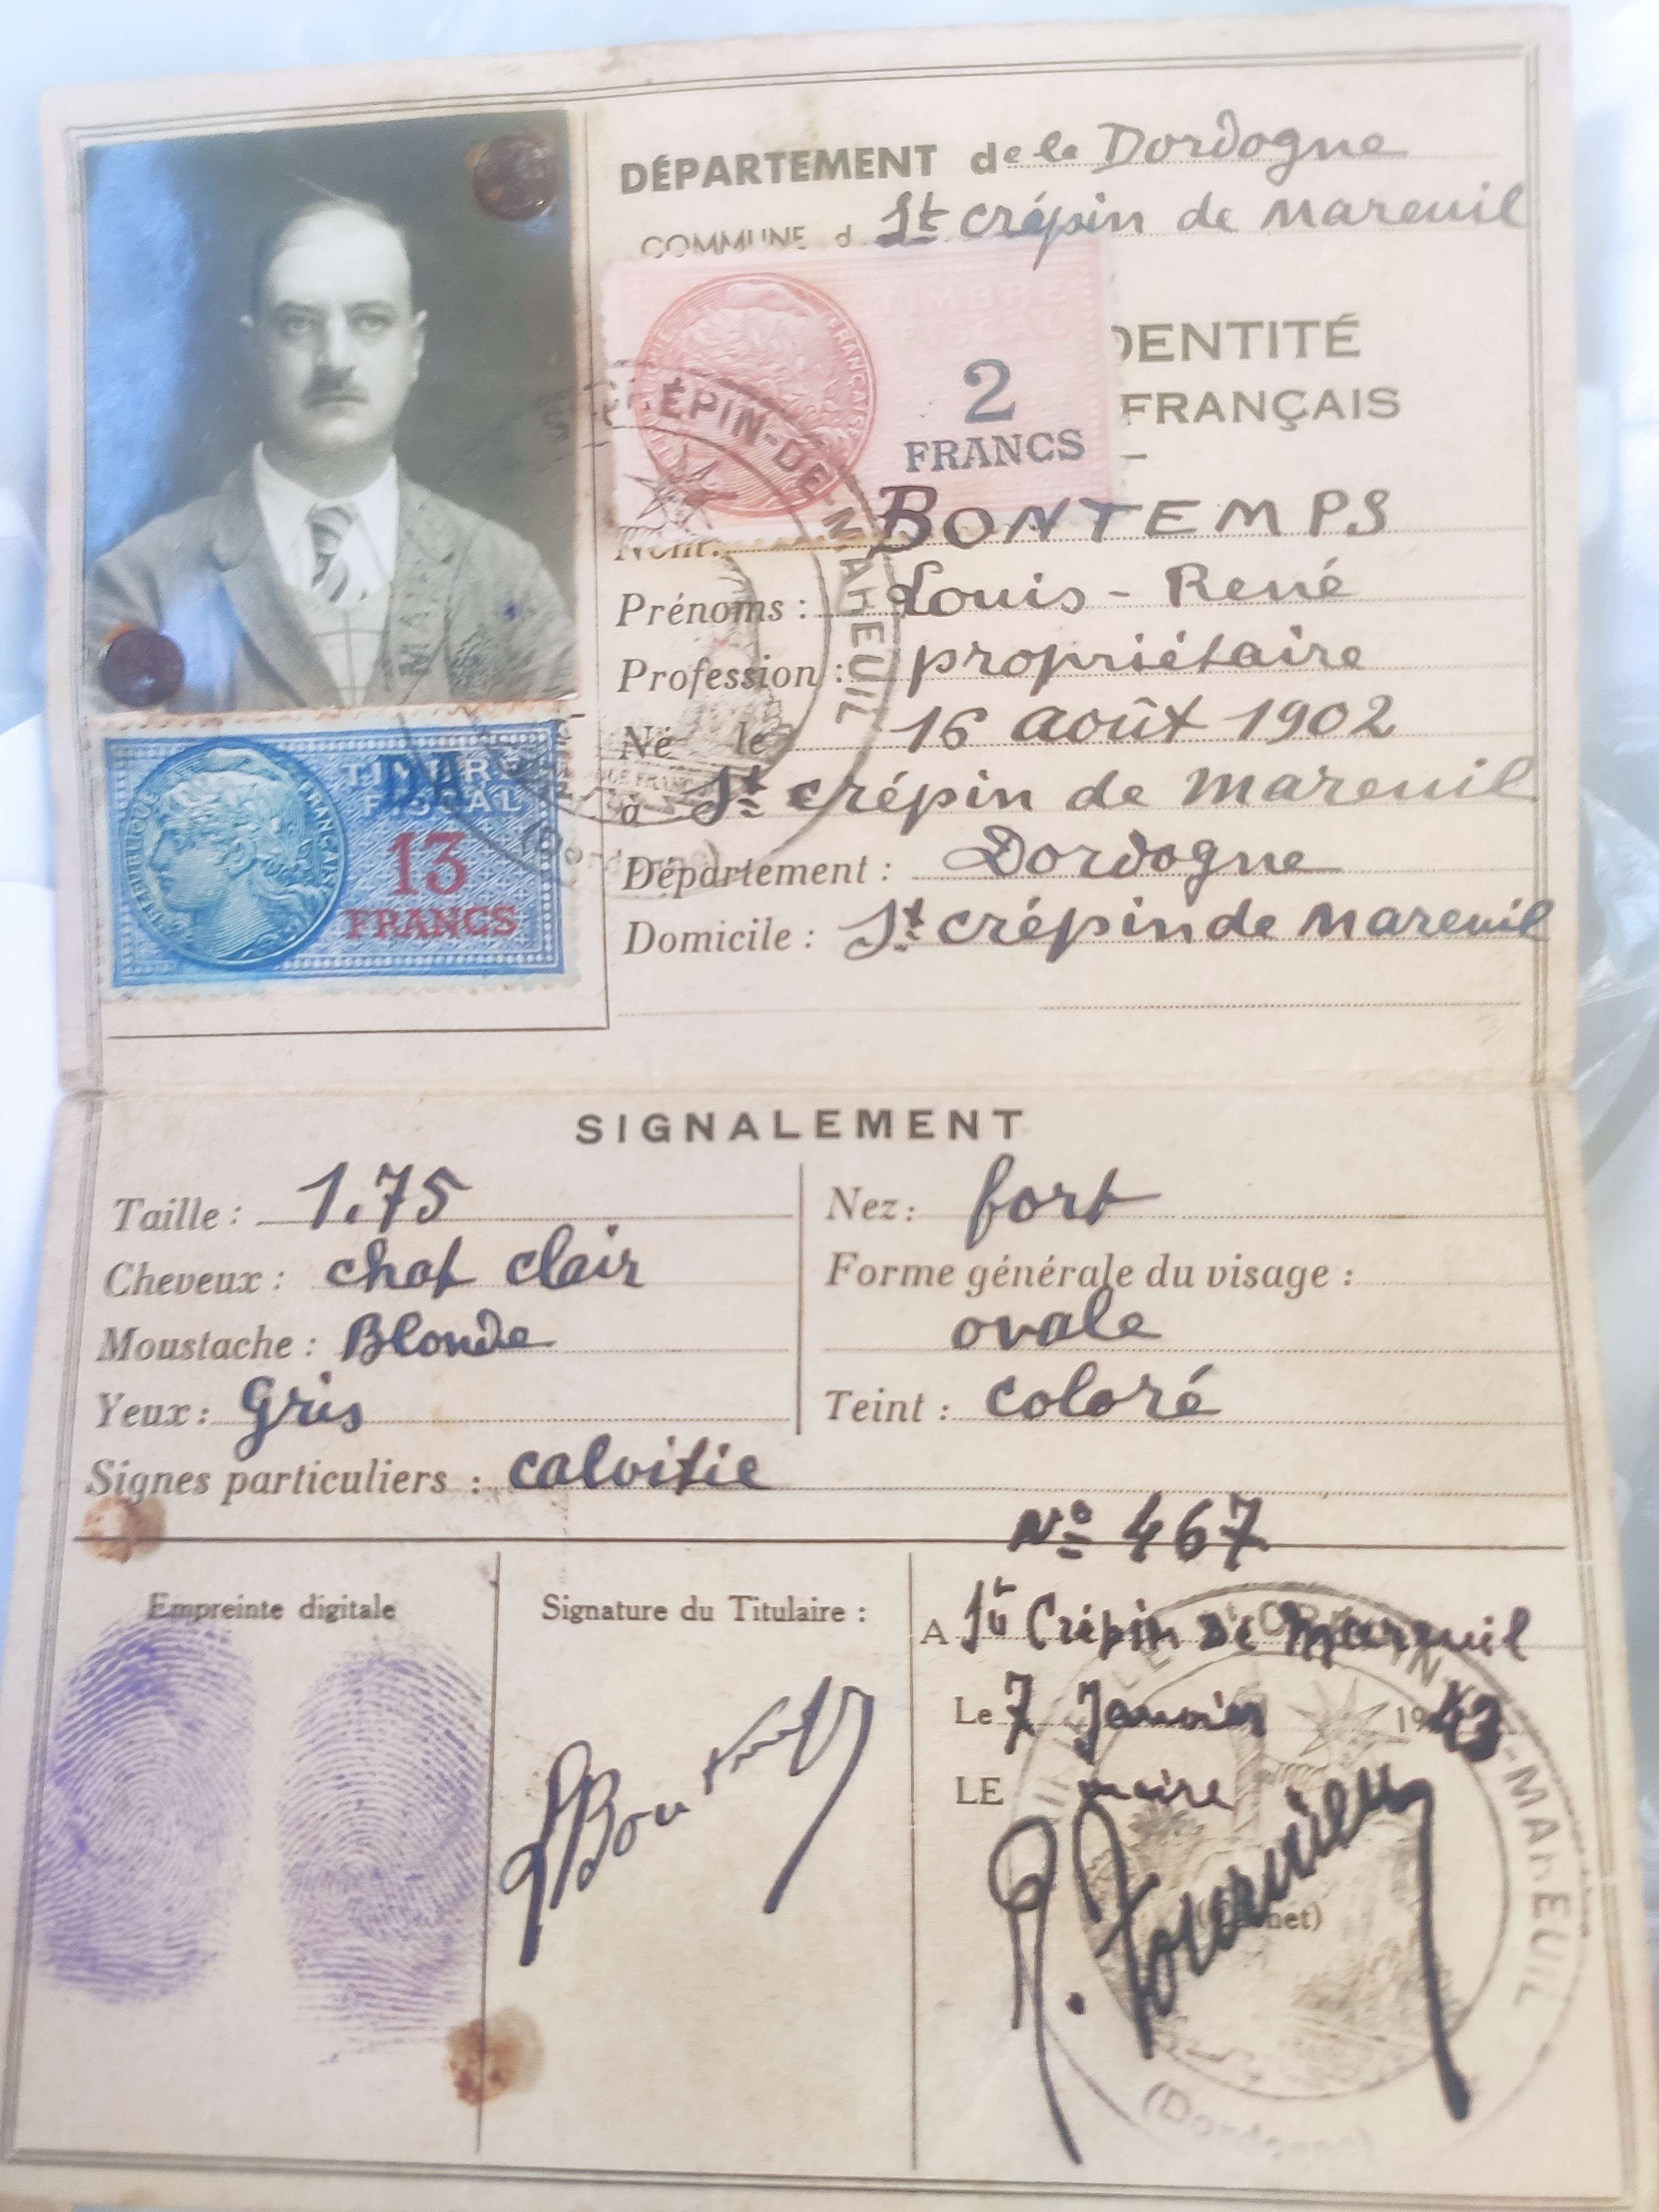 DÉPARTEMENT de la Dordogne
COMMUNE d St crépin de Mareuil
TIMBRE
FISCAL
2
FRANCS
DENTITÉ
FRANÇAIS
ÉPIN-DE-MAREUIL
Nom: BONTEMPS
Prénoms : Louis - René
Profession : propriétaire
Né le 16 août 1902
à St crépin de Mareuil
Département : Dordogne
Domicile : St crépin de Mareuil
RÉPUBLIQUE FRANÇAISE
TIMBRE
FISCAL
DA
13
FRANCS
SIGNALEMENT
Taille : 1.75
Cheveux : chat clair
Moustache : Blonde
Yeux : Gris
Nez : fort
Forme générale du visage :
ovale
Teint : coloré
Signes particuliers : calvitie
No 467
Empreinte digitale
Signature du Titulaire :
A St Crépin de Mareuil
Le 7 Janvier 1943
LE maire
-MAREUIL
(Dordogne)